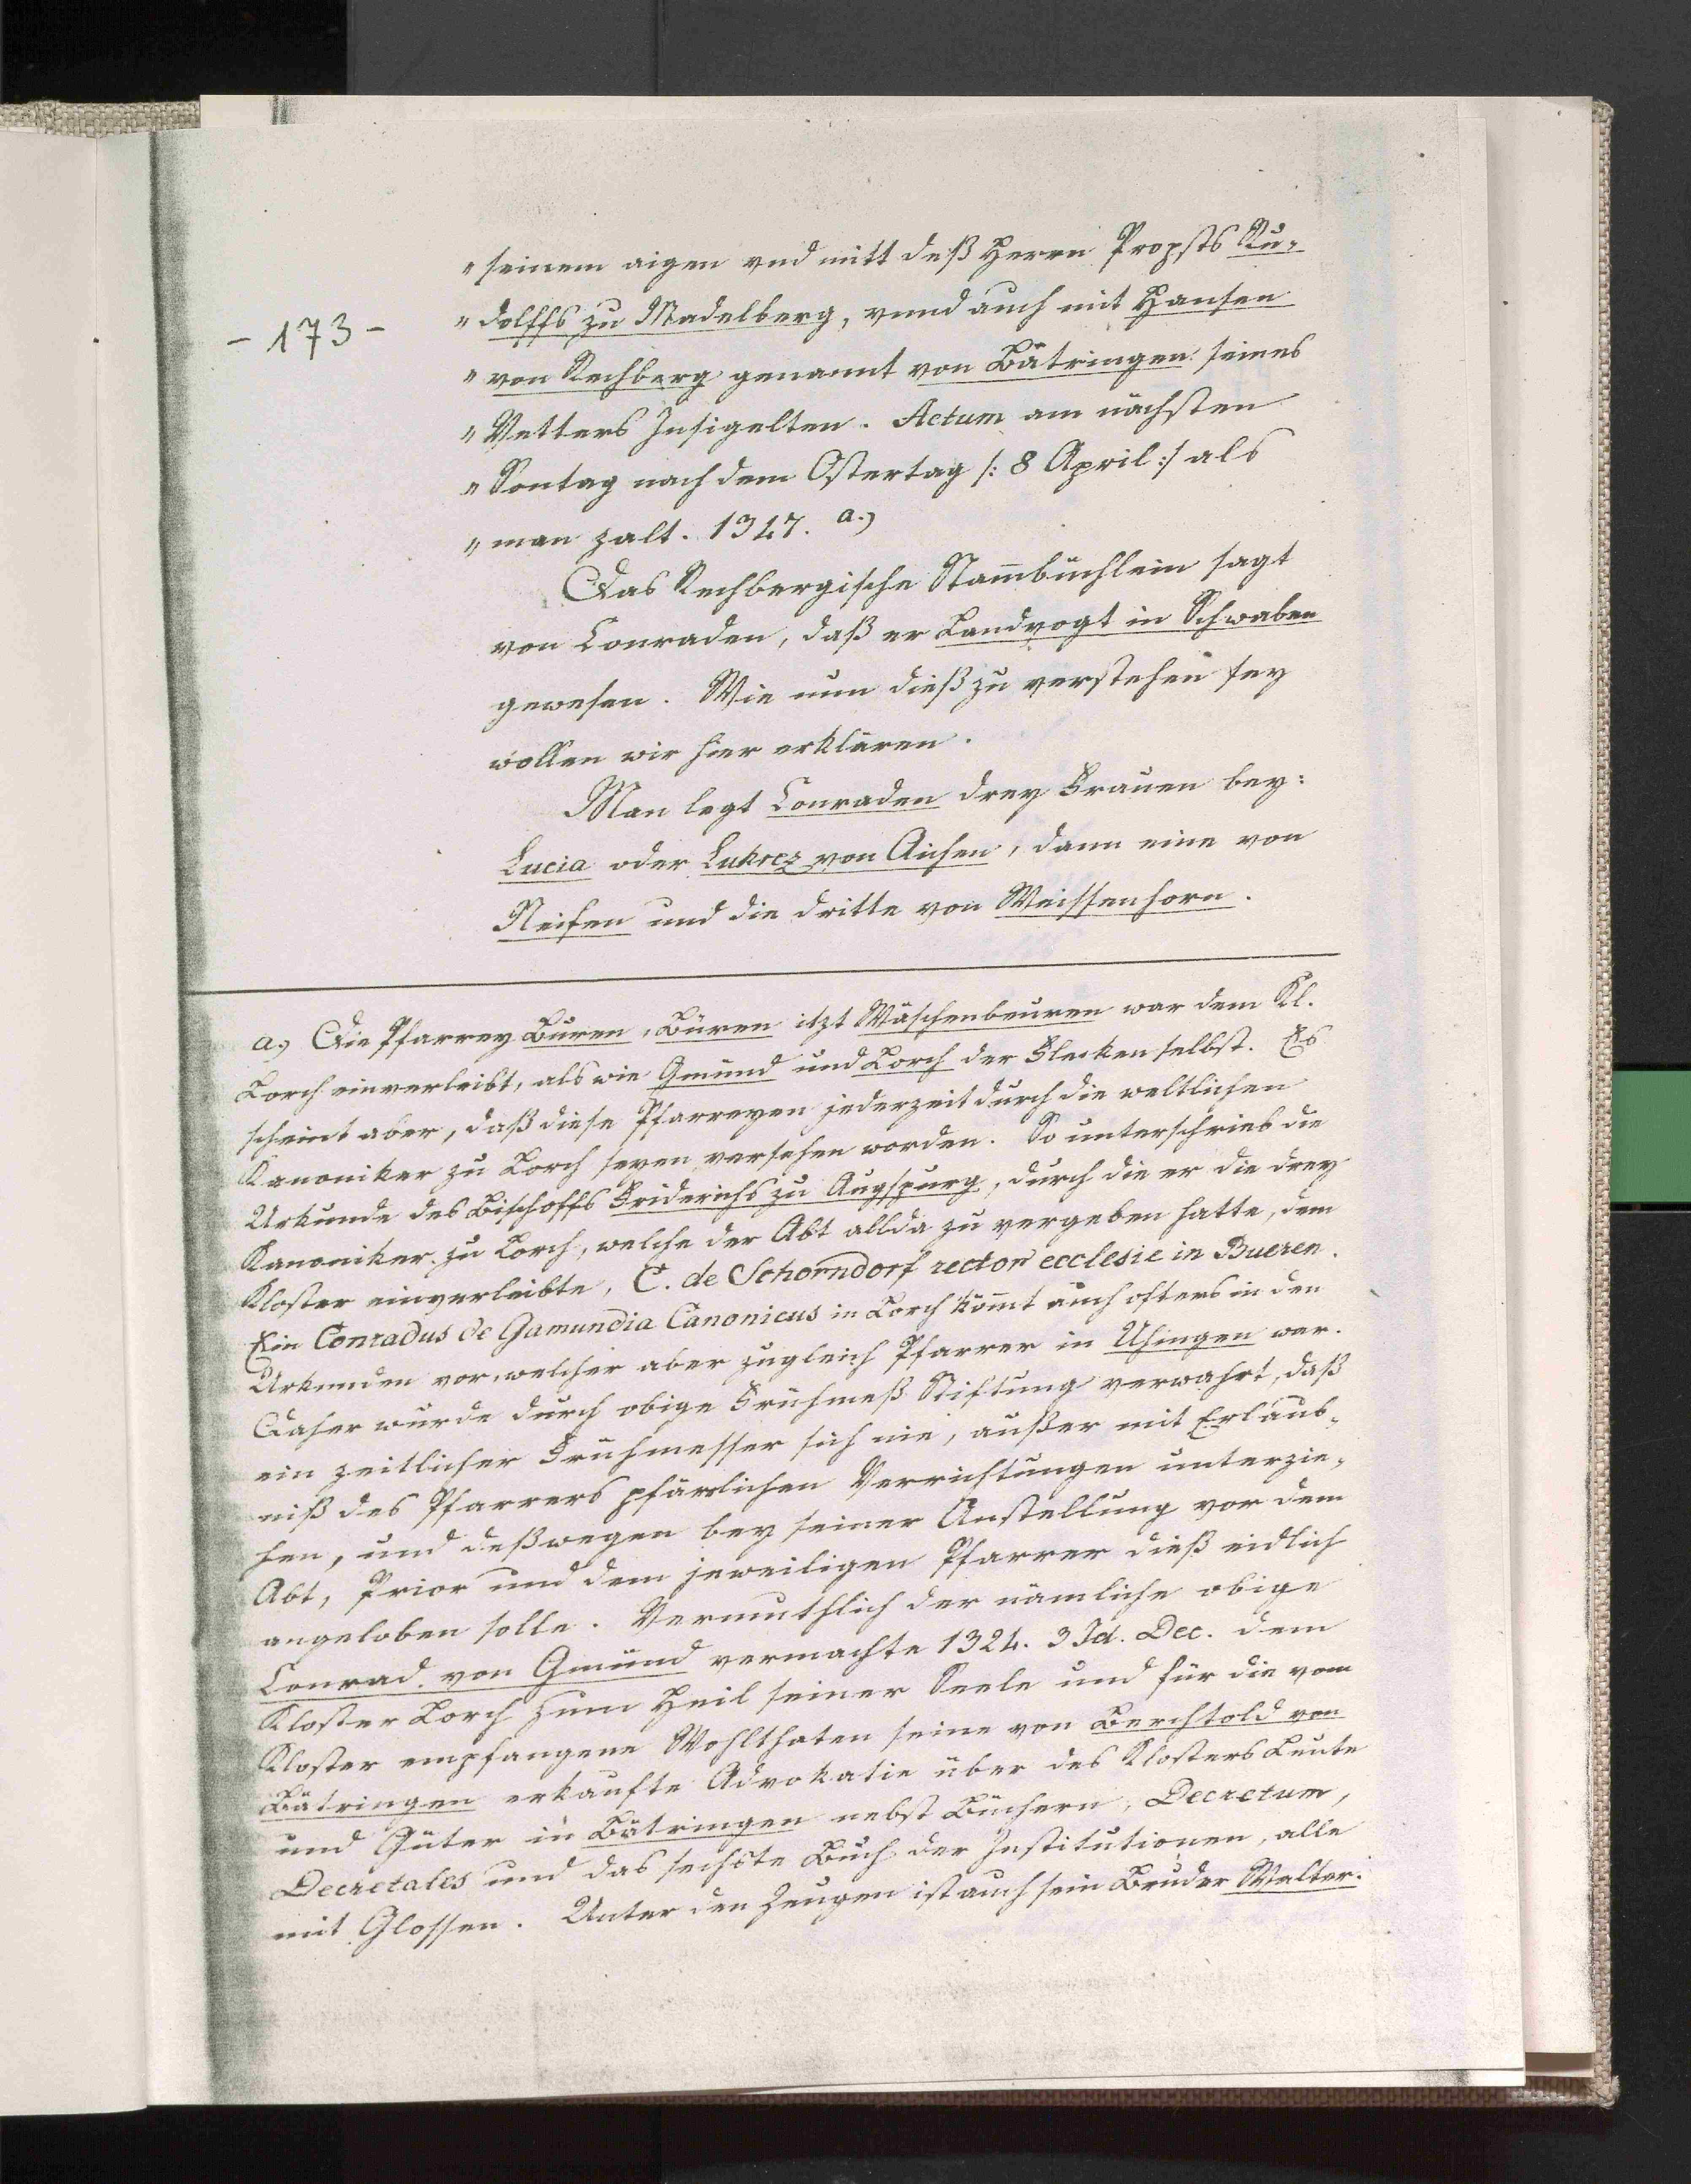 - 173 -
" seinem aigen vnd mitt deß Herrn Propsts Ru-
" dolffs zu Madelberg, vnnd auch mit Hansen
" von Rechberg genannt von Bätringen seines
" Vetters Insigelten. Actum am nächsten
" Sontag nach dem Ostertag /: 8 April :/ als
" man zalt. 1347. a.)
Das Rechbergische Stam̄büchlein sagt
von Conraden, daß er Landvogt in Schwaben
gewesen. Wie nun dieß zu verstehen sey
wollen wir hier erklären.
Man legt Conraden drey Frauen bey:
Lucia oder Lukrez von Aichen, dann eine von
Neifen und die dritte von Weissenhorn.
a.) Die Pfarrey Buren, Büren itzt Wäschenbeuren war dem Kl.
Lorch einverleibt, als wie Gmünd und Lorch der Flecken selbst. Es
scheint aber, daß diese Pfarreyen jederzeit durch die weltlichen
Kanoniker zu Lorch seyen versehen worden. So unterschrieb die
Urkunde des Bischoffs Friderichs zu Augspurg, durch die er die drey
Kanoniker zu Lorch, welche der Abt allda zu vergeben hatte, dem
Kloster einverleibte, C. de Schorndorf rector ecclesie in Bueren.
Ein Conradus de Gamundia Canonicus in Lorch kom̄t auch ofters in den
Urkunden vor, welcher aber zugleich Pfarrer in Uhingen war.
Daher wurde durch obige Frühmeß Stiftung verwahrt, daß
ein zeitlicher Frühmesser sich nie, außer mit Erlaub-
niß des Pfarrers pfärrlichen Verrichtungen unterzie-
hen, und deßwegen bey seiner Anstellung vor dem
Abt, Prior und dem jeweiligen Pfarrer dieß eidlich
angeloben solle. Vermuthlich der nämliche obige
Conrad von Gmünd vermachte 1324. 3 Id. Dec. dem
Kloster Lorch zum Heil seiner Seele und für die vom
Kloster empfangene Wohlthaten seine von Berchtold von
Bätringen erkaufte Advokatie über des Klosters Leute
und Güter in Bätringen nebst Büchern, Decretum,
Decretales und das sechste Buch der Institutionen, alle
mit Glossen. Unter den Zeugen ist auch sein Bruder Walter.